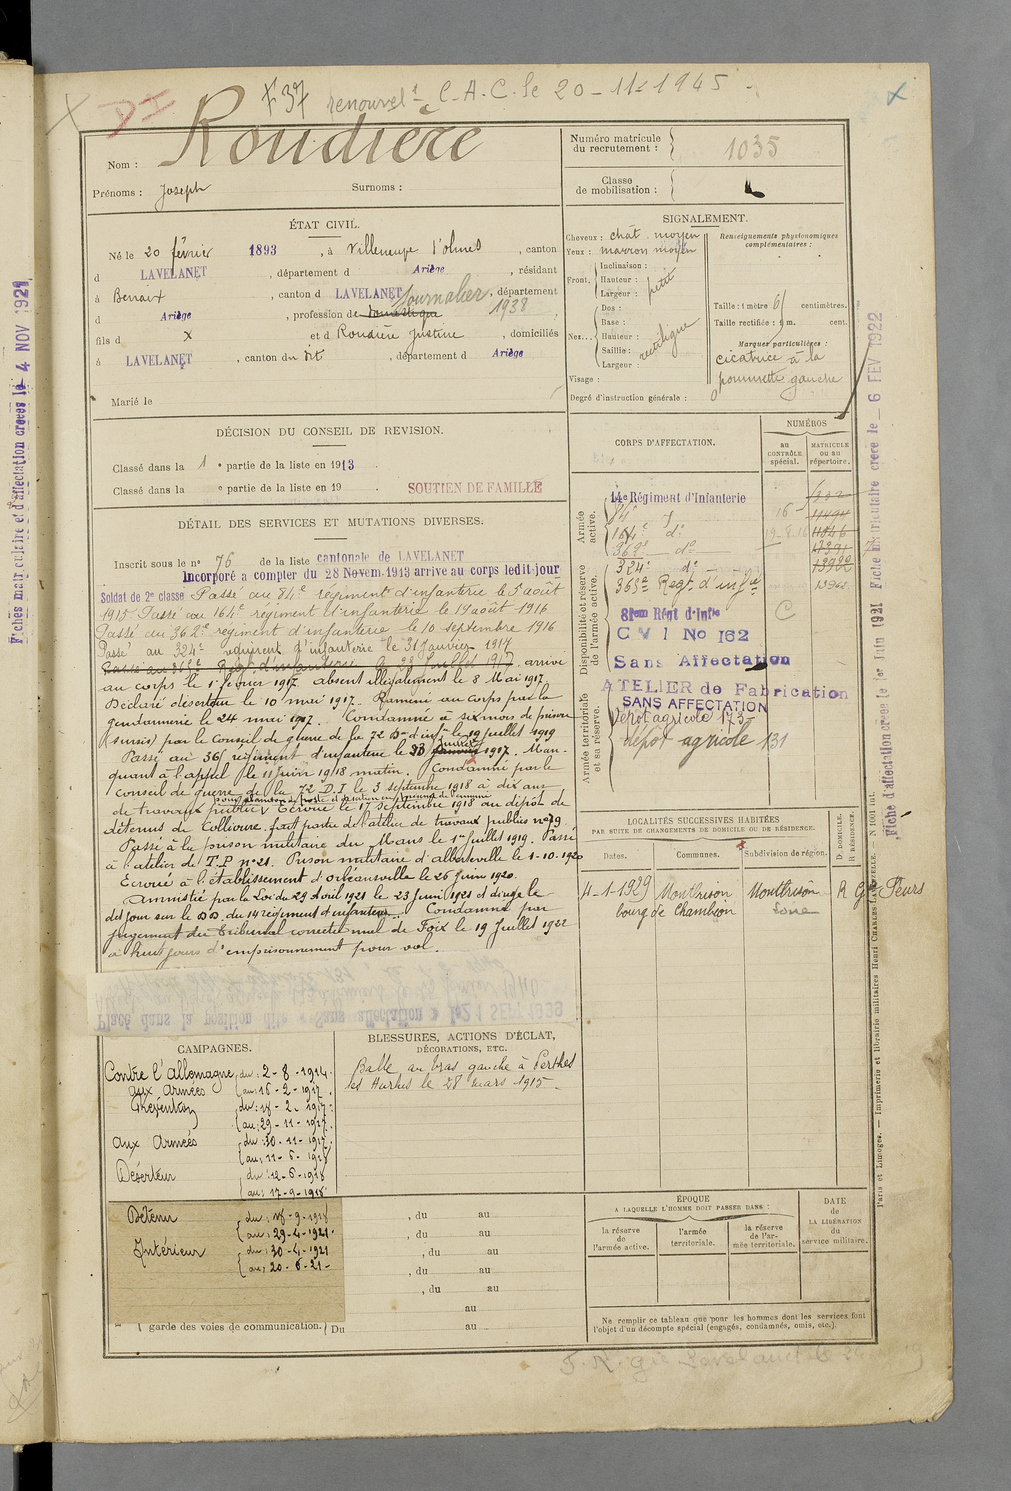 renouvelt C.A.C. le 20-11-1945
Nom : Roudière
Prénoms : Joseph Surnoms :
Numéro matricule du recrutement : 1035
Classe de mobilisation :
ÉTAT CIVIL.
Né le 20 février 1893, à Villeneuve d'Olmes, canton
d LAVELANET, département d Ariège, résidant
à Benaix, canton d LAVELANET, département
d Ariège, profession de domestique Journalier 1938
fils d x et d Roudière Justine, domiciliés
à LAVELANET, canton du dt, département d Ariège
Marié le
SIGNALEMENT.
Cheveux : chat. moyen
Yeux : marron moyen
Front, Inclinaison :
Hauteur : petit
Largeur :
Nez... Dos :
Base :
Hauteur : rectiligne
Saillie :
Largeur :
Visage :
Degré d'instruction générale :
Renseignements physionomiques complémentaires :
Taille : 1 mètre 61 centimètres.
Taille rectifiée : 1 m. cent.
Marques particulières :
cicatrice à la
pommette gauche
DÉCISION DU CONSEIL DE REVISION.
Classé dans la 1e partie de la liste en 1913
Classé dans la e partie de la liste en 19
SOUTIEN DE FAMILLE
DÉTAIL DES SERVICES ET MUTATIONS DIVERSES.
Inscrit sous le no 76 de la liste cantonale de LAVELANET
Incorporé à compter du 28 Novem. 1913 arrivé au corps ledit jour
Soldat de 2e classe Passé au 34e régiment d'infanterie le 5 août
1915. Passé au 164e régiment d'infanterie le 19 août 1916
Passé au 362e régiment d'infanterie le 10 septembre 1916
Passé au 324e régiment d'infanterie le 31 Janvier 1917
Passé au 365e Régt d'infanterie le 23 Juillet 1917. arrivé
au corps le 1er février 1917. absent illégalement le 8 Mai 1917
Déclaré déserteur le 10 mai 1917. Ramené au corps par la
gendarmerie le 24 mai 1917. Condamné à six mois de prison
(sursis) par le Conseil de guerre de la 72 Don d'inf. le 19 juillet 1919
Passé au 365 régiment d'infanterie le 23 juillet 1917. Man-
quant à l'appel le 11 juin 1918 matin. Condamné par le
conseil de guerre de la 72 D.I le 3 septembre 1918 à dix ans
de travaux publics Ecroué le 17 septembre 1918 au dépôt de
détenus de Collioure. fait partie de l'atelier de travaux publics no 79
Passé à la prison militaire du Mans le 1er juillet 1919. Passé
à l'atelier de T.P no 21. Prison militaire d'Albertville le 1-10-1920
Ecroué à l'établissement d'orléansville le 26 juin 1920.
Amnistié par la Loi du 29 Avril 1921 le 23 Juin 1921 et dirigé le
dit jour sur le DD. du 14 régiment d'infanterie. Condamné par
jugement du Tribunal correctionnel de Foix le 19 Juillet 1922
à huit jours d'emprisonnement pour vol.
Placé dans la position dite « Sans affectation » le 21 SEPT 1939
CORPS D'AFFECTATION.
NUMÉROS
au CONTRÔLE spécial.
MATRICULE ou au répertoire.
Armée active.
14e Régiment d'Infanterie
34e
164e do
362e do
Disponibilité et réserve de l'armée active.
324e do
365e Régt d'infie
81eme Régt d'Infie
C V I No 162
Sans Affectation
Armée territoriale et sa réserve.
ATELIER de Fabrication
SANS AFFECTATION
Dépôt agricole 173
dépôt agricole 131
LOCALITÉS SUCCESSIVES HABITÉES
PAR SUITE DE CHANGEMENTS DE DOMICILE OU DE RÉSIDENCE.
Dates. Communes. Subdivision de région. D. DOMICILE. R. RÉSIDENCE.
4-1-1929 Montbrison Montbrison R Gie Feurs
bourg de Chambéon Loire
CAMPAGNES.
Contre l'Allemagne du : 2-8-1914
aux Armées au : 16-2-1917
du : 18-2-1917
au : 29-11-1917
aux Armées du : 30-11-1917
au : 11-6-1918
Déserteur du : 12-6-1918
au : 17-9-1918
Détenu du : 18-9-1918
au : 29-4-1921
Intérieur du : 30-4-1921
au : 20-6-21
garde des voies de communication. Du au
BLESSURES, ACTIONS D'ÉCLAT,
DÉCORATIONS, ETC.
Balle au bras gauche à Perthes
les Hurlus le 28 mars 1915
, du au
, du au
, du au
, du au
, du au
au
ÉPOQUE
A LAQUELLE L'HOMME DOIT PASSER DANS :
la réserve de l'armée active.
l'armée territoriale.
la réserve de l'armée territoriale.
DATE de LA LIBÉRATION du service militaire.
Ne remplir ce tableau que pour les hommes dont les services font
l'objet d'un décompte spécial (engagés, condamnés, omis, etc.).
Fiches matriculaire et d'affectation créées le 4 NOV 1921
Fiche matriculaire créée le 6 FEV 1922
Fiche d'affectation créée le 1er Juin 1921
Paris et Limoges. — Imprimerie et librairie militaires Henri CHARLES-LAVAUZELLE.